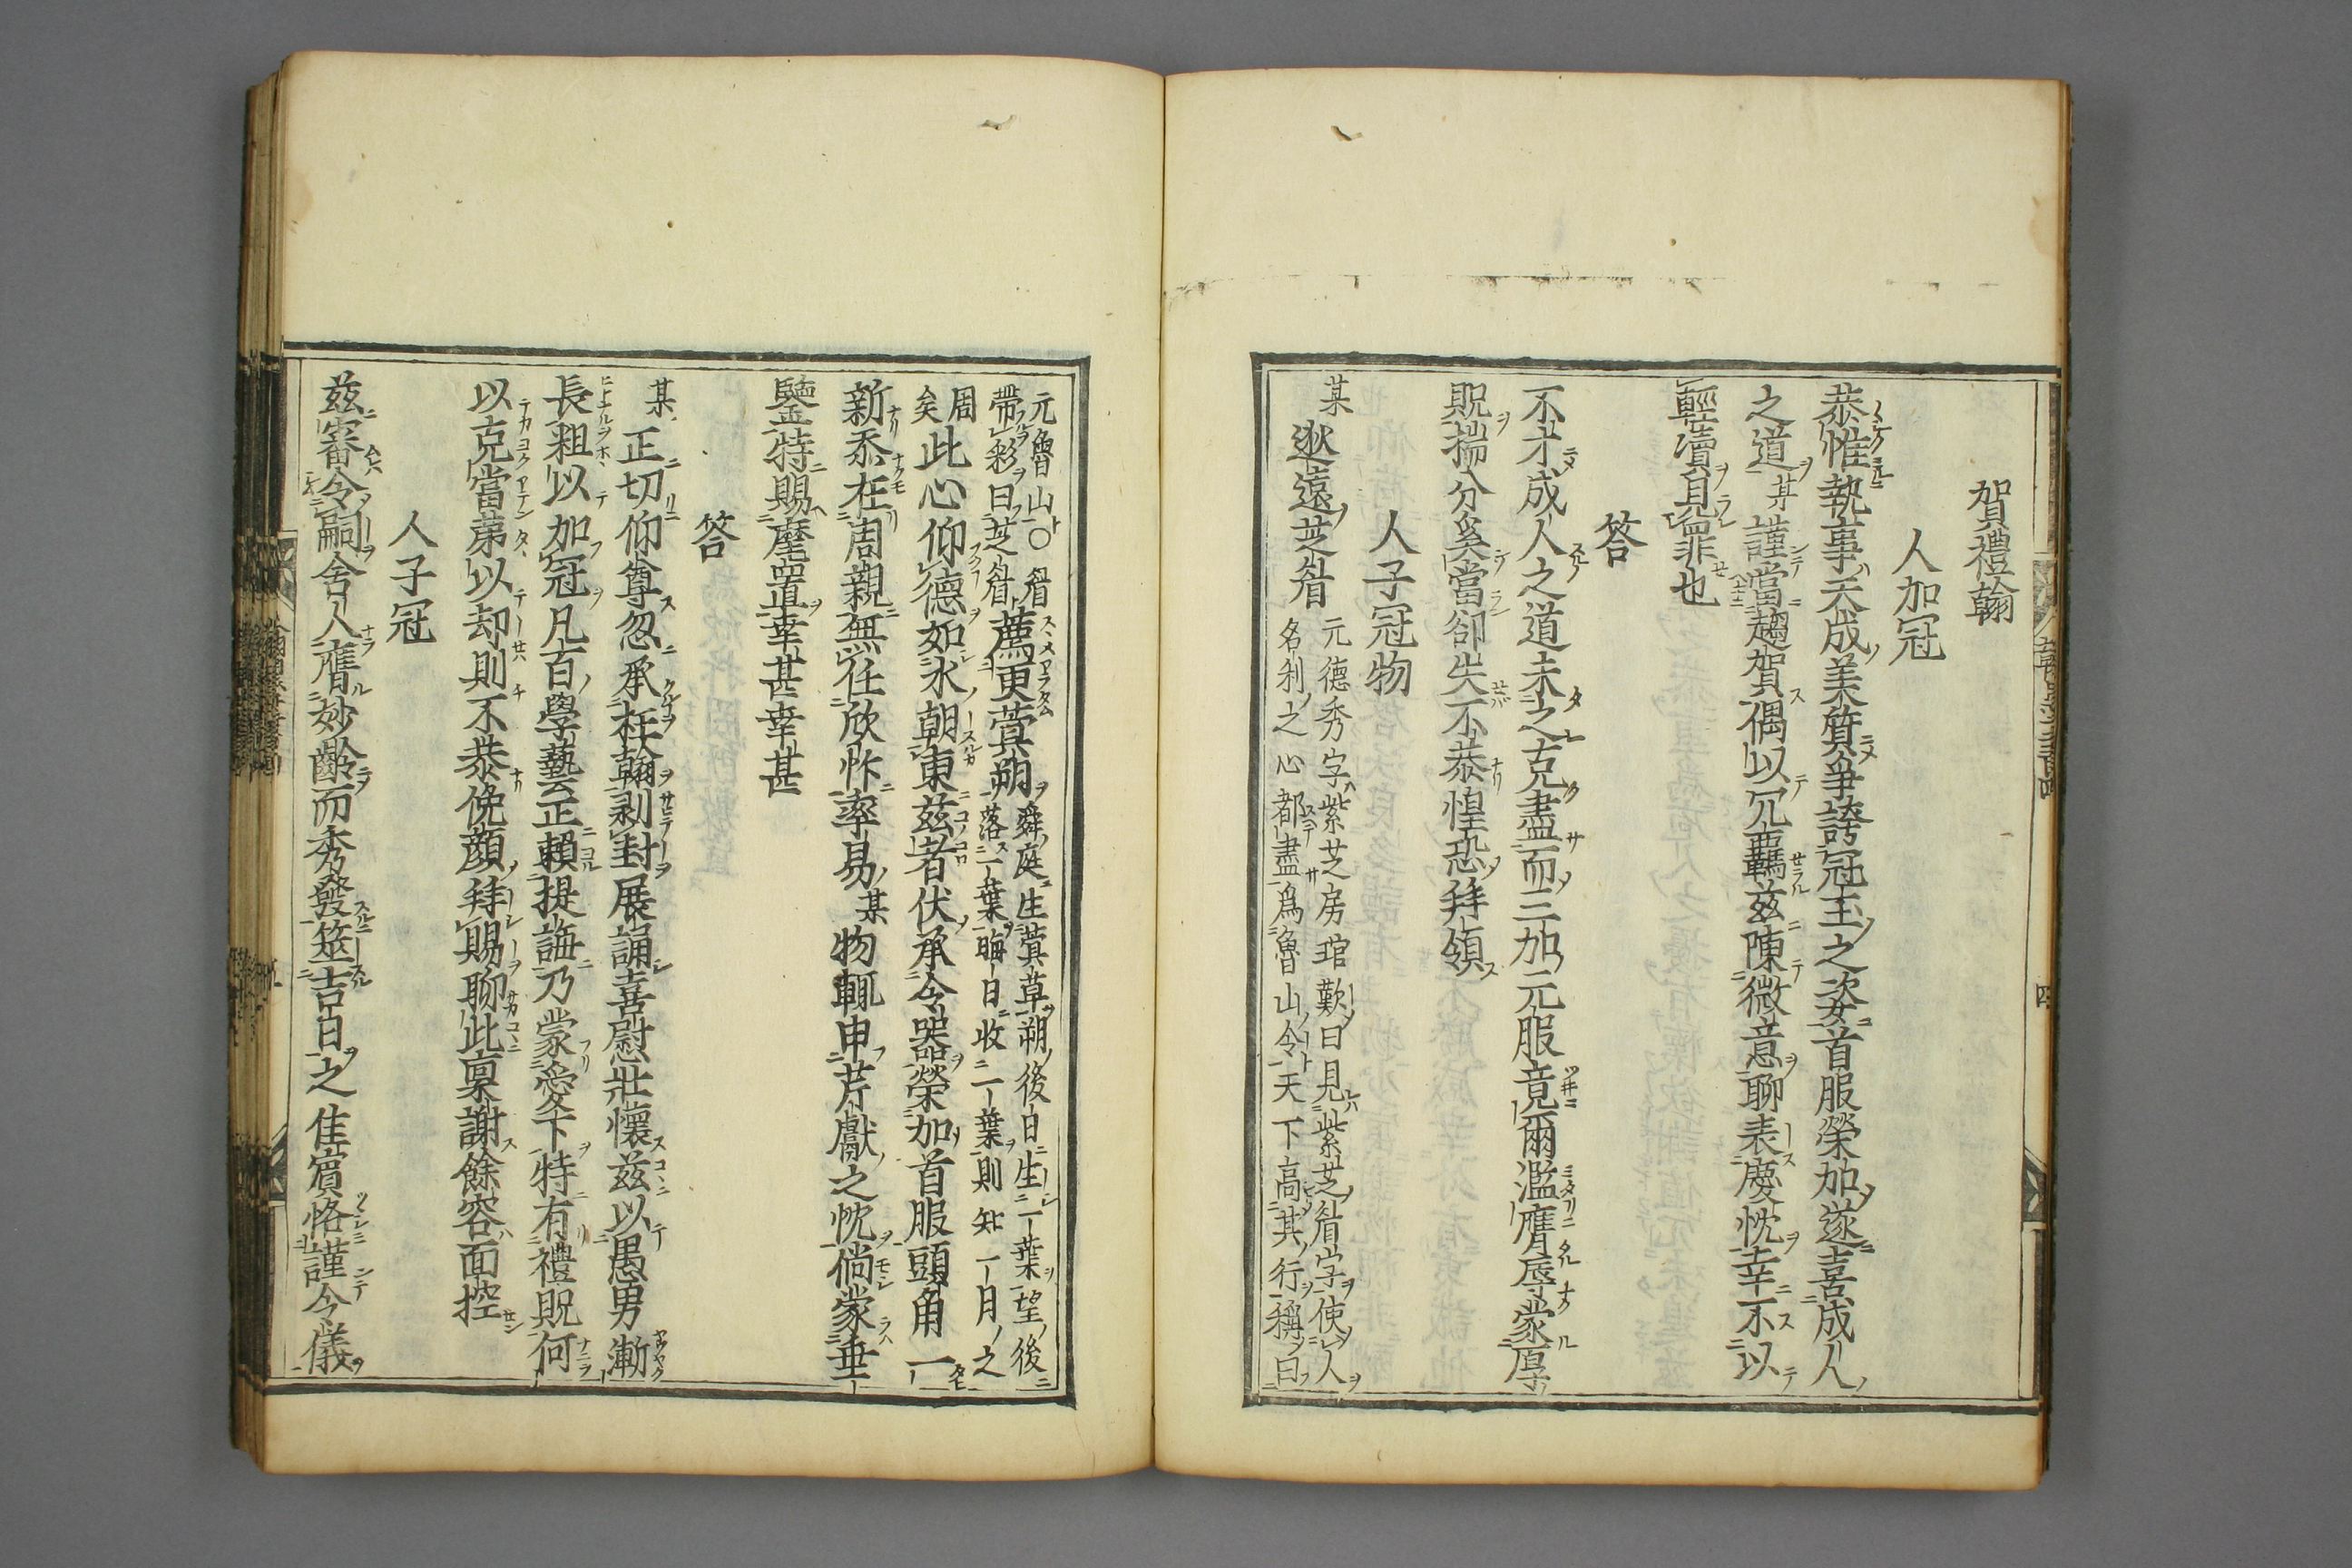 賀禮翰
人加冠
恭惟執事天成美質爭誇冠玉之姿首服榮加遂喜成人
之道某謹當趨賀偶以冗覊兹陳微意聊表慶忱幸不以
輕瀆見罪也
答
不才成人之道未之克盡而三加元服竟爾濫膺辱蒙厚
貺揣分奚當卻失不恭惶恐拜領
人子冠物
某逖遠芝眉元德秀字紫芝房琯歎曰見紫芝眉宇使人
名利之心都盡爲魯山令天下高其行稱曰
元魯山○眉薦更蓂朔舜庭生蓂草朔後日生一葉望後
帶彩曰芝眉落一葉晦日收一葉則知一月之
周矣此心仰德如水朝東兹者伏承令器榮加首服頭角一
新忝在周親無任欣怍率易某物輒申芹獻之忱倘蒙垂
鑒特賜麾置幸甚幸甚
答
某正切仰尊忽承枉翰剥封展誦喜慰壯懷兹以愚男漸
長粗以加冠凡百學藝正賴提誨乃蒙愛下特有禮貺何
以克當第以却則不恭俛顔拜賜聊此稟謝餘容面控
人子冠
兹審令嗣舍人膺妙齡而秀發筮吉日之佳賓恪謹令儀